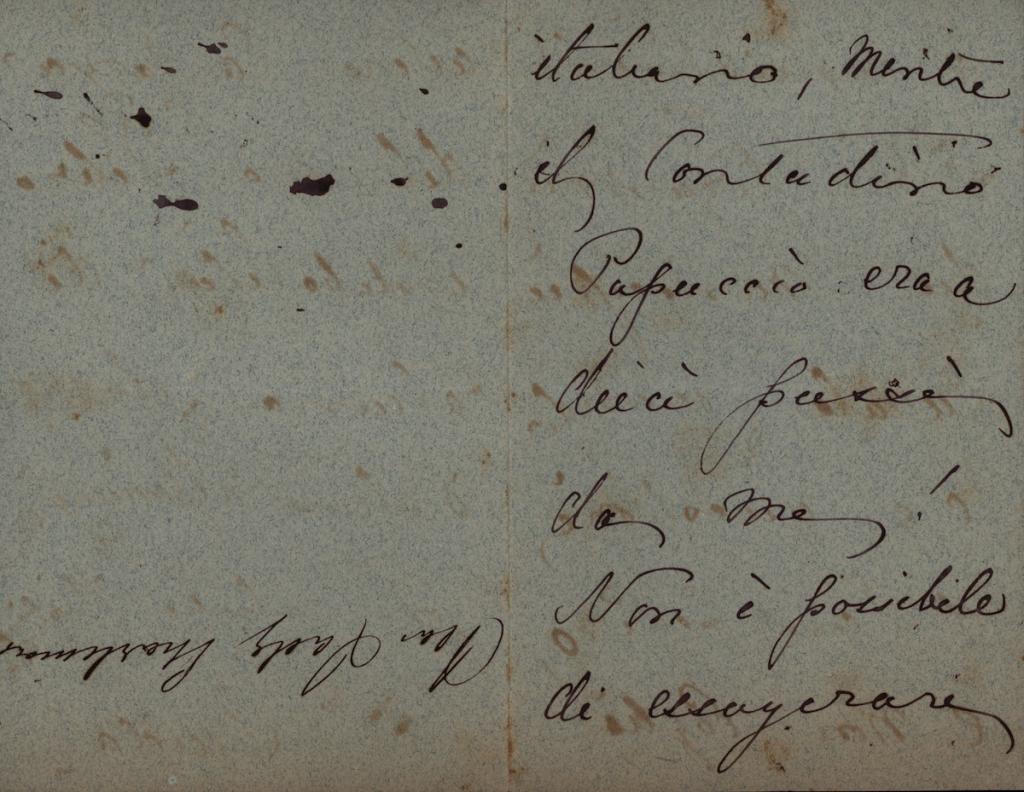 italiano, mentre
il Contadino
Papuccio era a
dieci passi
da me!
Non è possibile
di essagerare